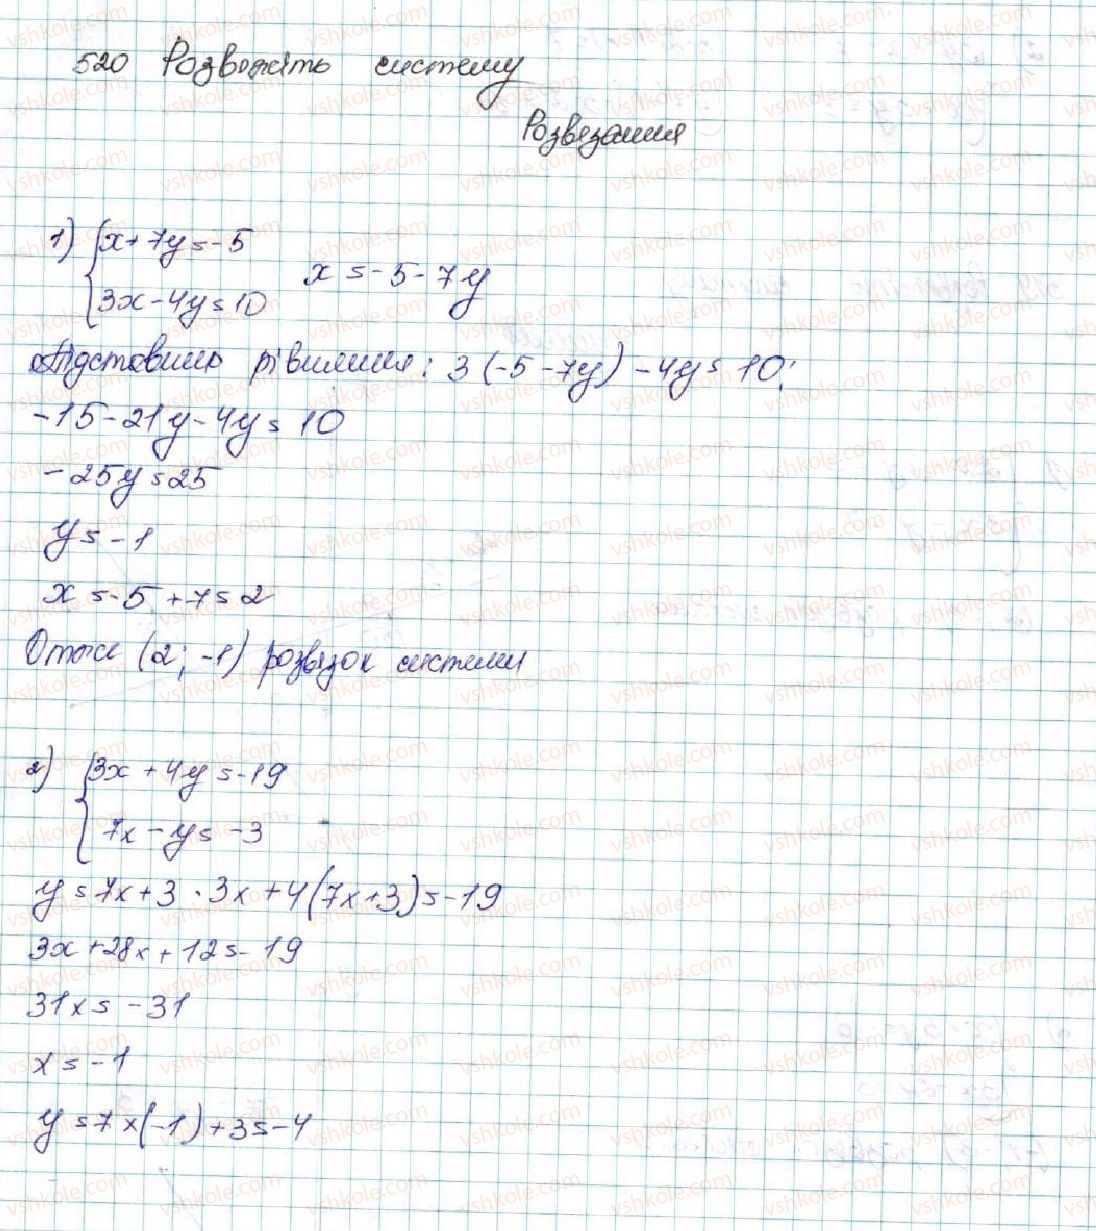 520 Розвяжіть систему
Розвязання
1) {x + 7y = -5
3x - 4y = 10
x = -5 - 7y
Підставимо рівняння: 3 (-5 - 7y) - 4y = 10;
-15 - 21y - 4y = 10
-25y = 25
y = -1
x = -5 + 7 = 2
Отже (2; -1) розвязок системи
2) {3x + 4y = -19
7x - y = -3
y = 7x + 3 · 3x + 4(7x + 3) = -19
3x + 28x + 12 = -19
31x = -31
x = -1
y = 7 x (-1) + 3 = -4